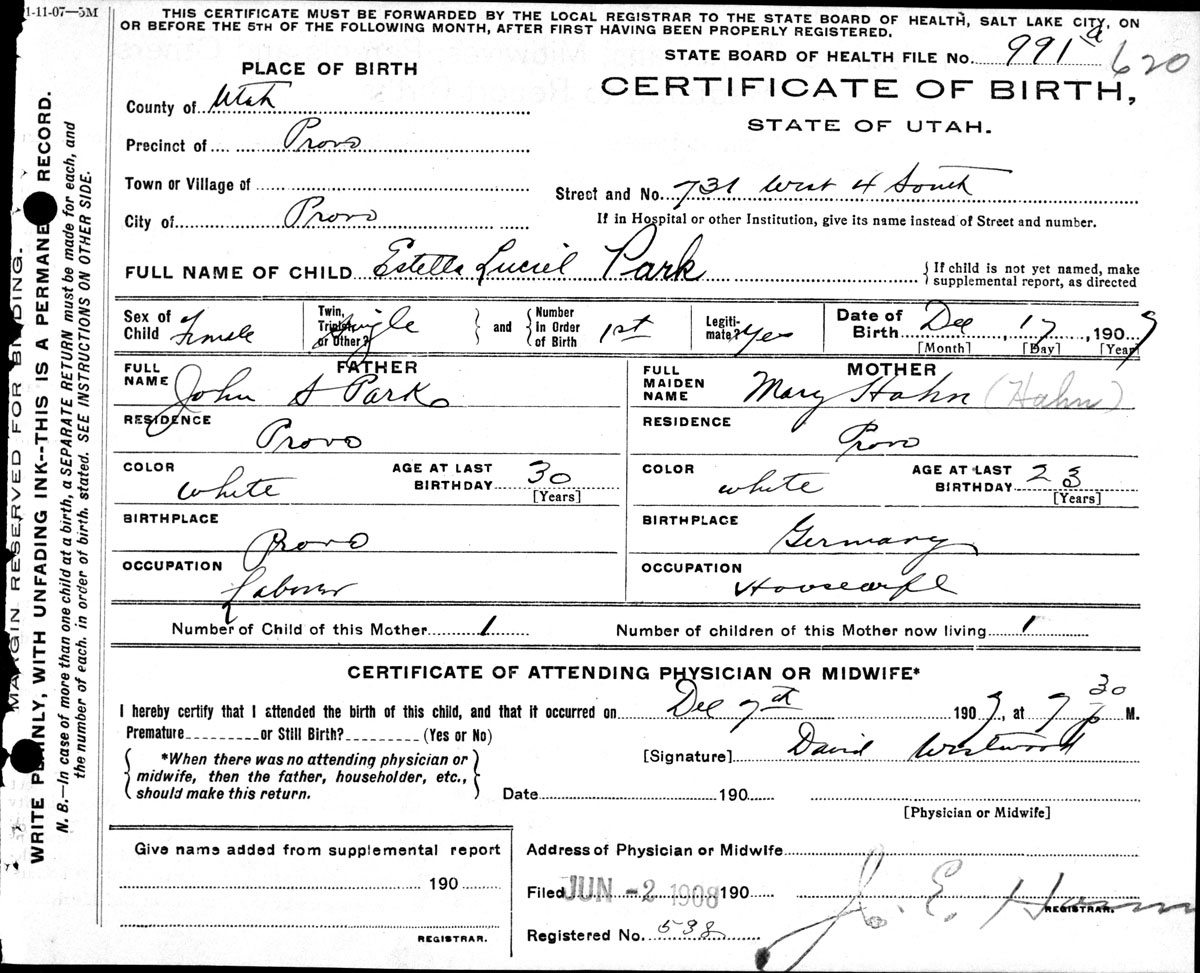 1-11-07--5M
THIS CERTIFICATE MUST BE FORWARDED BY THE LOCAL REGISTRAR TO THE STATE BOARD OF HEALTH, SALT LAKE CITY, ON
OR BEFORE THE 5TH OF THE FOLLOWING MONTH, AFTER FIRST HAVING BEEN PROPERLY REGISTERED.
STATE BOARD OF HEALTH FILE No. 991 a 620
PLACE OF BIRTH
CERTIFICATE OF BIRTH,
STATE OF UTAH.
County of Utah
Precinct of Provo
Town or Village of
Street and No. 731 West 4 South
City of Provo
If in Hospital or other Institution, give its name instead of Street and number.
FULL NAME OF CHILD Estella Luciel Park
{ If child is not yet named, make
supplemental report, as directed
Sex of Child Female
Twin, Triplet, or Other? Single
and { Number in Order of Birth 1st
Legitimate? Yes
Date of Birth Dec 17, 1907
[Month] [Day] [Year]
FATHER
FULL NAME John S Park
RESIDENCE Provo
COLOR white AGE AT LAST BIRTHDAY 30 [Years]
BIRTHPLACE Provo
OCCUPATION Laborer
MOTHER
FULL MAIDEN NAME Mary Hahn (Hahn)
RESIDENCE Provo
COLOR white AGE AT LAST BIRTHDAY 23 [Years]
BIRTHPLACE Germany
OCCUPATION Housewife
Number of Child of this Mother 1 Number of children of this Mother now living 1
CERTIFICATE OF ATTENDING PHYSICIAN OR MIDWIFE*
I hereby certify that I attended the birth of this child, and that it occurred on Dec 7th 1907, at 7 30 p M.
Premature or Still Birth? (Yes or No)
[Signature] David Westwood
{ *When there was no attending physician or
midwife, then the father, householder, etc.,
should make this return. }
Date 190
[Physician or Midwife]
Give name added from supplemental report
190
REGISTRAR.
Address of Physician or Midwife
Filed JUN -2 1908 190
J. E.
REGISTRAR.
Registered No. 538
MARGIN RESERVED FOR BINDING.
WRITE PLAINLY, WITH UNFADING INK--THIS IS A PERMANE RECORD.
N. B.—In case of more than one child at a birth, a SEPARATE RETURN must be made for each, and
the number of each, in order of birth, stated. SEE INSTRUCTIONS ON OTHER SIDE.